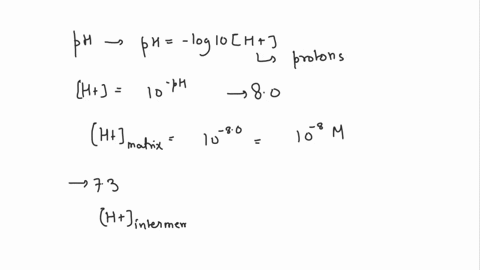 pH → pH = -log10[H+]
↳ protons
[H+] = 10^-pH → 8.0
[H+]matrix = 10^-8.0 = 10^-8 M
→ 73
[H+]intermem